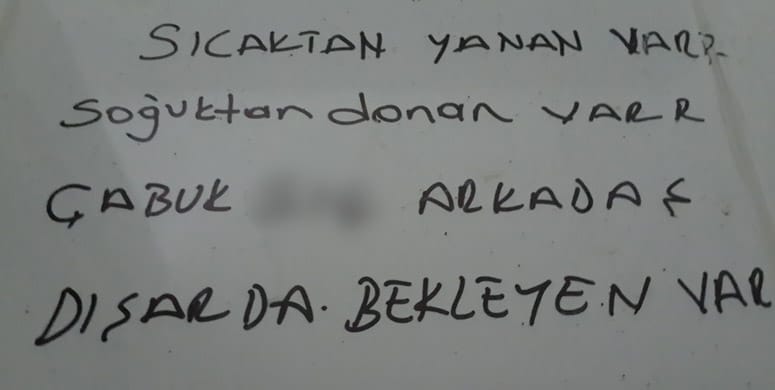 SICAKTAN YANAN VARR
soğuktan donan VARR
ÇABUK ARKADAŞ
DIŞARDA. BEKLEYEN VAR